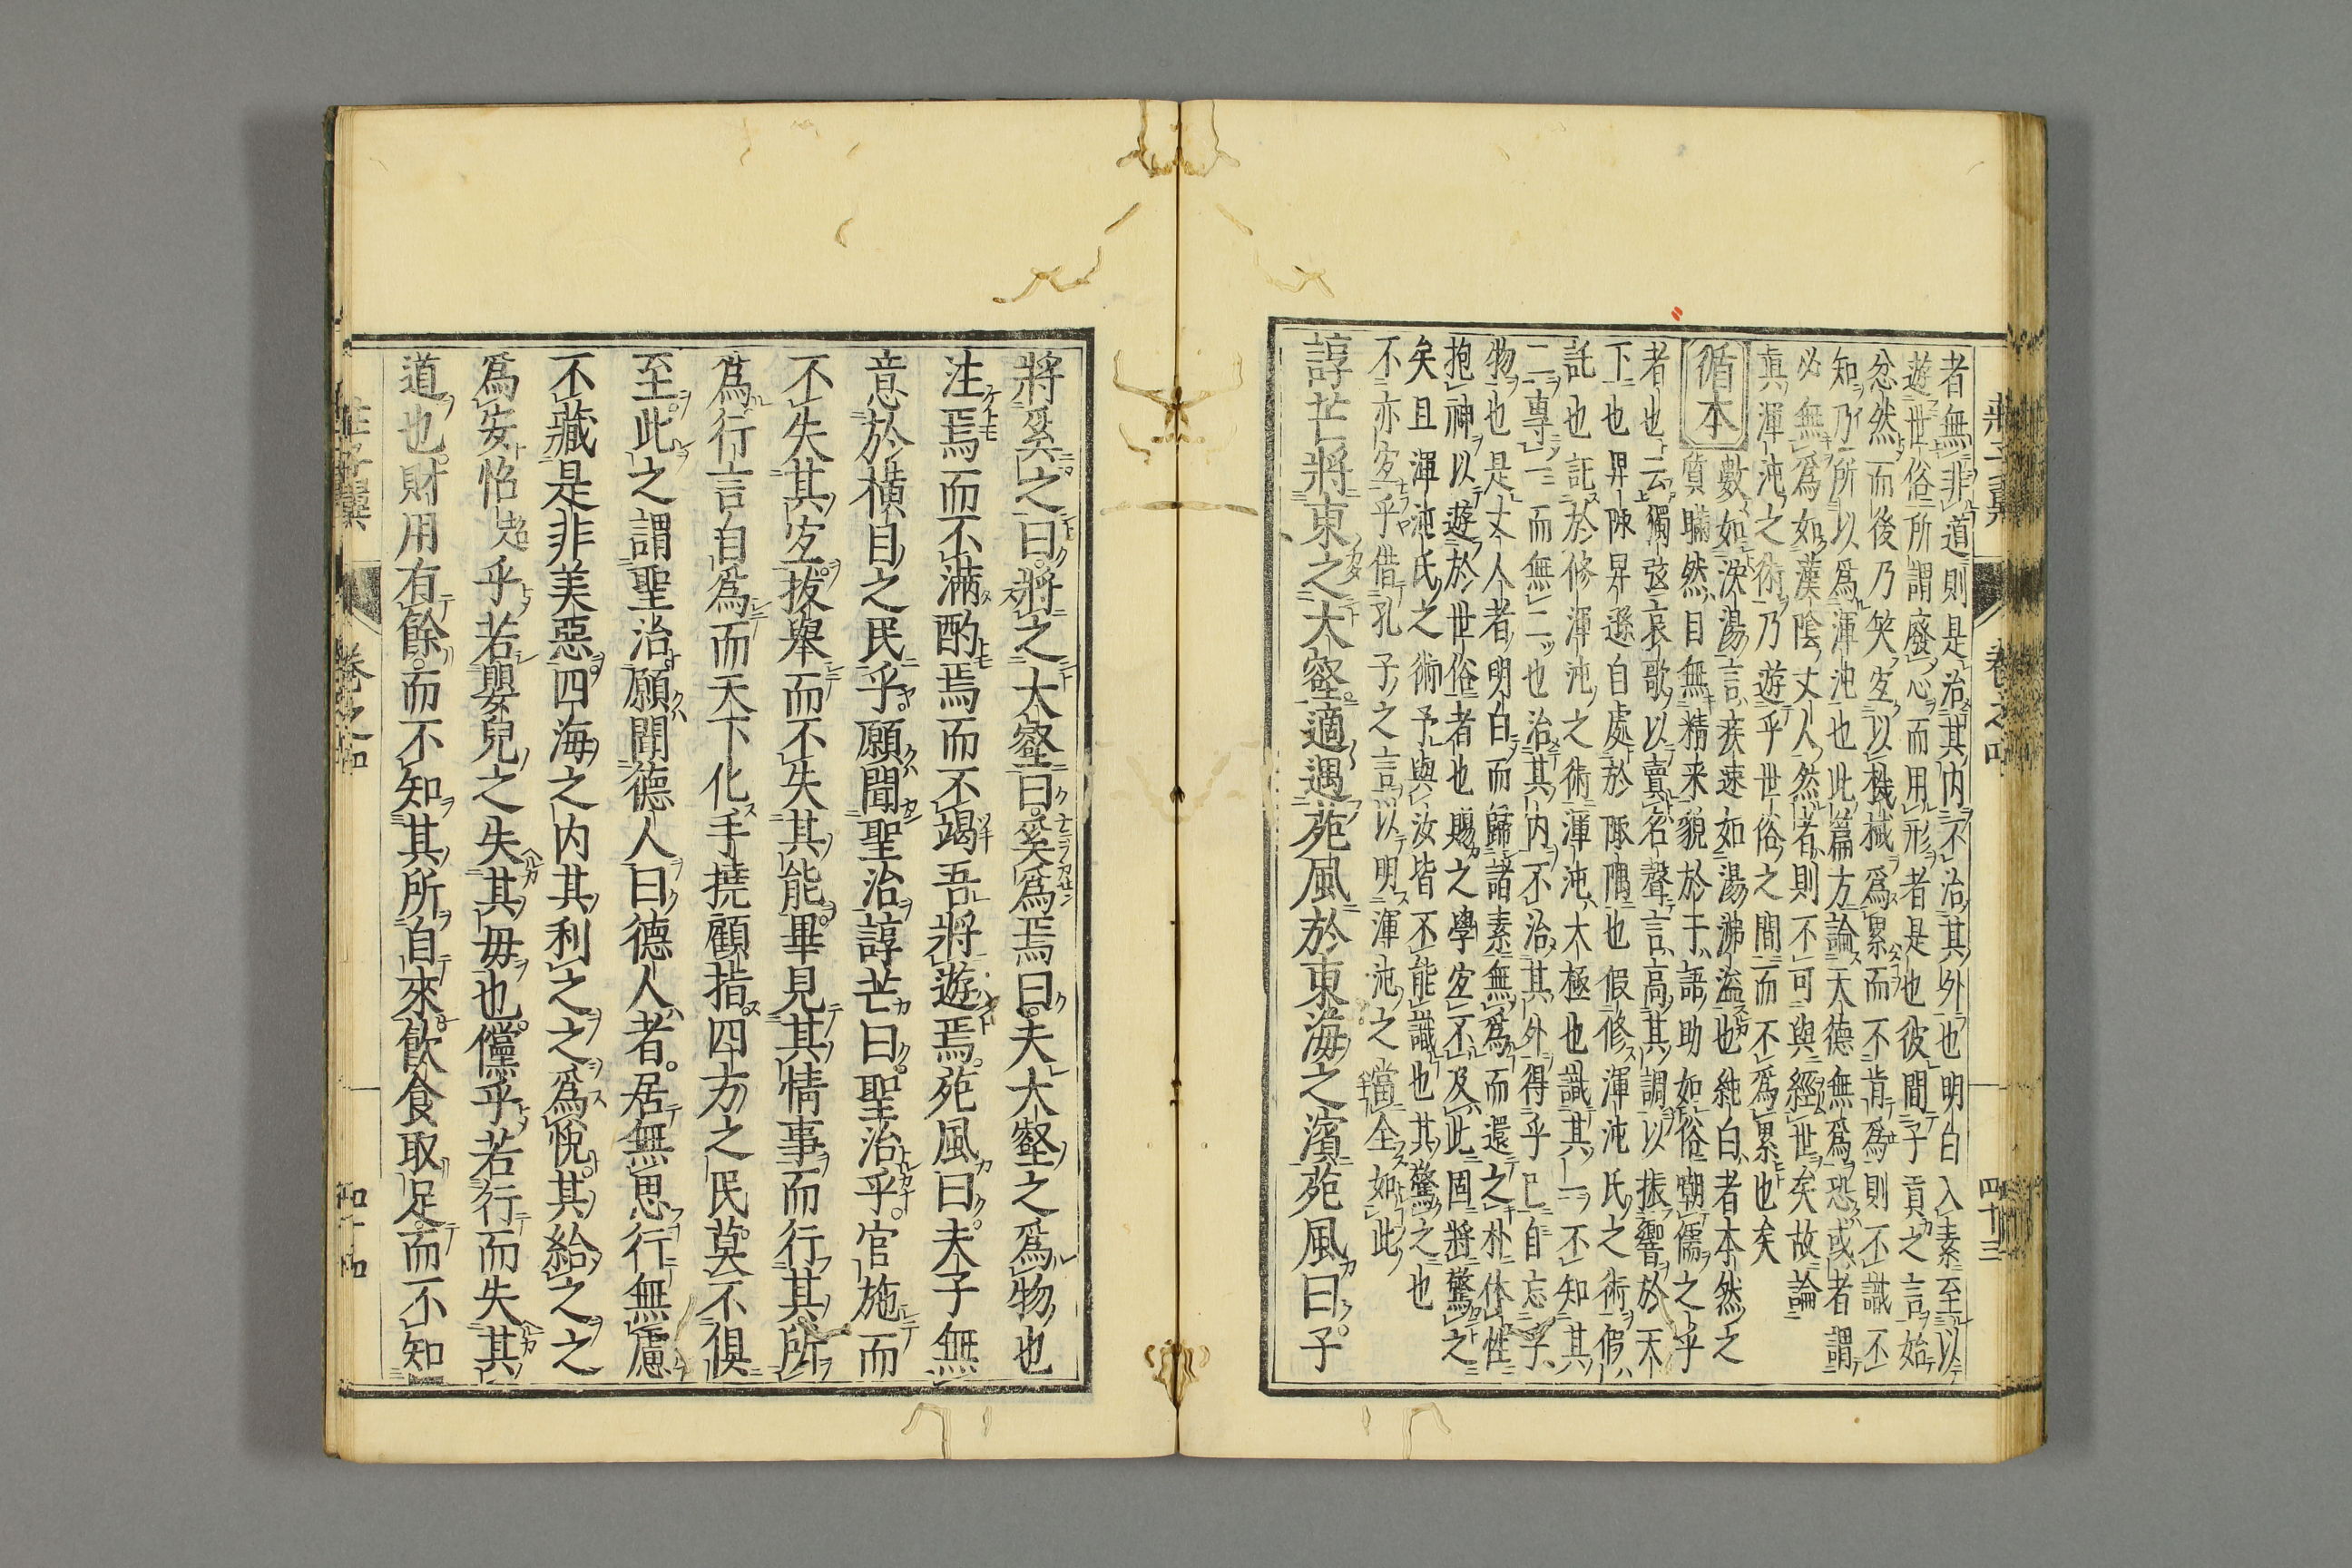 者無非道則是治其内不治其外也明白入素至以
遊世俗所謂廢心而用形者是也彼間子貢之言始
忿然而後乃笑宐以機械爲累而不肯爲則不識不
知乃所以爲渾沌也此篇方論天德無爲恐或者謂
必無爲如漢陰丈人然者則不可與經世矣故論
眞渾沌之術乃遊乎世俗之間而不爲累也矣
循本
數如泆湯言疾速如湯沸溢也純白者本然之
質瞞然目無精采貌於于語助如俗嘲儒之乎
者也云獨弦哀歌以賣名聲言高其調以振響於天
下也卑陬卑遜自處於陬隅也假修渾沌氏之術假
託也託於修渾沌之術渾沌太極也識其一不知其
二專一而無二也治其内不治其外得乎己自忘乎
物也是丈人者明白而歸諸素無爲而還之朴体性
抱神以遊於世俗者也賜之學宐不及此固將驚之
矣且渾沌氏之術予與汝皆不能識也其驚之也
不亦宐乎借孔子之言以明渾沌之當全如此
諄芒將東之大壑適遇苑風於東海之濱苑風曰子
莊子翼 卷之四 四十三
將奚之曰將之大壑曰奚爲焉曰夫大壑之爲物也
注焉而不滿酌焉而不竭吾將遊焉苑風曰夫子無
意於橫目之民乎願聞聖治諄芒曰聖治乎官施而
不失其宐拔舉而不失其能畢見其情事而行其所
爲行言自爲而天下化手撓顧指四方之民莫不俱
至此之謂聖治願聞德人曰德人者居無思行無慮
不藏是非美惡四海之内其利之之爲悅其給之之
爲安怊乎若嬰兒之失其母也儻乎若行而失其
道也財用有餘而不知其所自來飮食取足而不知
莊子翼 卷之四 四十四